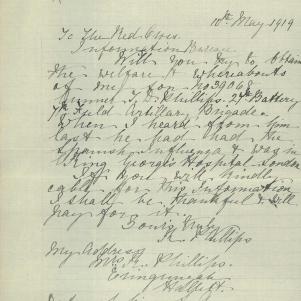 10th May 1919
To The Red Cross
Information Bureau
Will you try to obtain
the welfare & whereabouts
of my son No 39068
Gunner J. D. Phillips. 27th Battery
7th Field Artillery Brigade.
When I heard from him
last he had had the
Spanish Influenza & was in
King George's Hospital London
If you will kindly
cable for this Information
I shall be thankful & will
pay for it.
Yours truly
Phillips
My Address
Mrs Phillips.